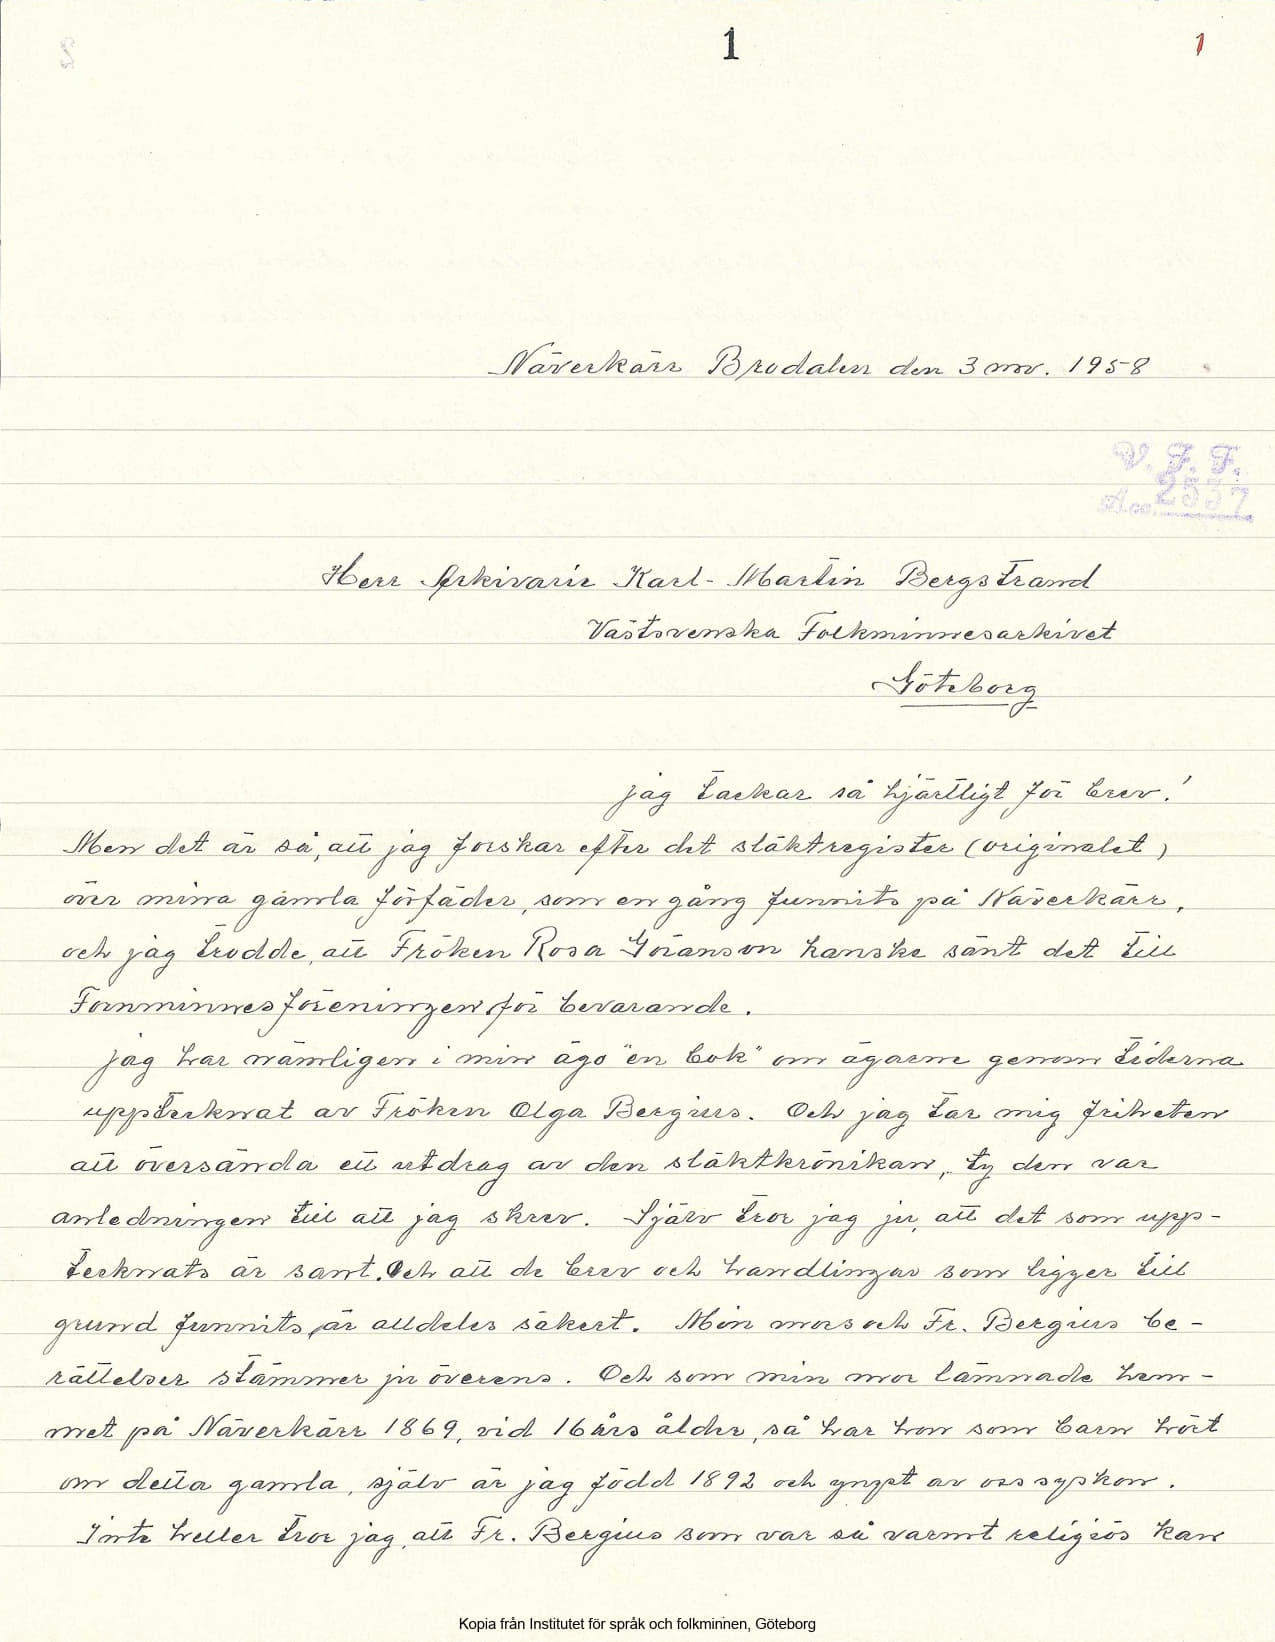 1
1
Näverkärr Brodalen den 3 nov. 1958
V. F. F.
Acc. 2537
Herr Arkivarie Karl-Martin Bergstrand
Västsvenska Folkminnesarkivet
Göteborg
jag tackar så hjärtligt för brev!
Men det är så, att jag forskar efter det släktregister (originalet)
över mina gamla förfäder, som en gång funnits på Näverkärr,
och jag trodde, att Fröken Rosa Göranson kanske sänt det till
Fornminnesföreningen för bevarande.
jag har nämligen i min ägo "en bok" om ägarne genom tiderna
upptecknat av Fröken Olga Bergius. Och jag tar mig friheten
att översända ett utdrag av den släktkrönikan, ty den var
anledningen till att jag skrev. Själv tror jag ju, att det som upp-
tecknats är sant. Och att de brev och handlingar som ligger till
grund funnits, är alldeles säkert. Min mors och Fr. Bergius be-
rättelser stämmer ju överens. Och som min mor lämnade hem-
met på Näverkärr 1869, vid 16 års ålder, så har hon som barn hört
om detta gamla, själv är jag född 1892 och yngst av oss syskon.
Inte heller tror jag, att Fr. Bergius som var så varmt religiös kan
Kopia från Institutet för språk och folkminnen, Göteborg